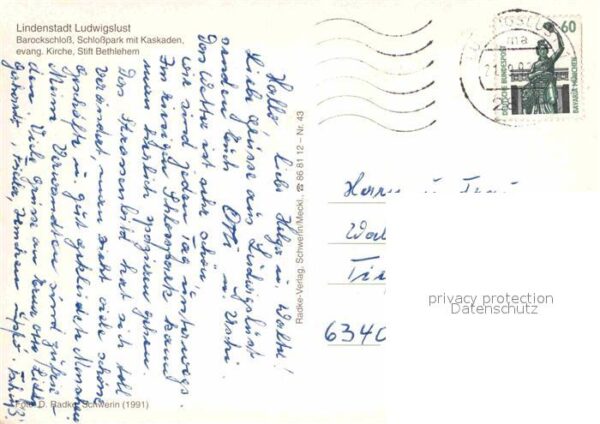 Lindenstadt Ludwigslust
Barockschloß, Schloßpark mit Kaskaden,
evang. Kirche, Stift Bethlehem
Hallo, liebe Helga u. Walter!
Liebe Grüsse aus Ludwigslust
senden Euch Otti u. Uschi.
Das Wetter ist sehr schön,
wir sind jeden Tag unterwegs.
Im riesigen Schlosspark kann
man herrlich spazieren gehen.
Das Strassenbild hat sich toll
verändert, man sieht viele schöne
Geschäfte u. gut gekleidete Menschen.
Meine Verwandten sind
Viele Grüsse an
Foto: D. Radke, Schwerin (1991)
Radke-Verlag, Schwerin/Meckl., ☎ 86 81 12 – Nr. 43
60
DEUTSCHE BUNDESPOST
BAVARIA MÜNCHEN
Herrn u. Frau
6340
privacy protection
Datenschutz